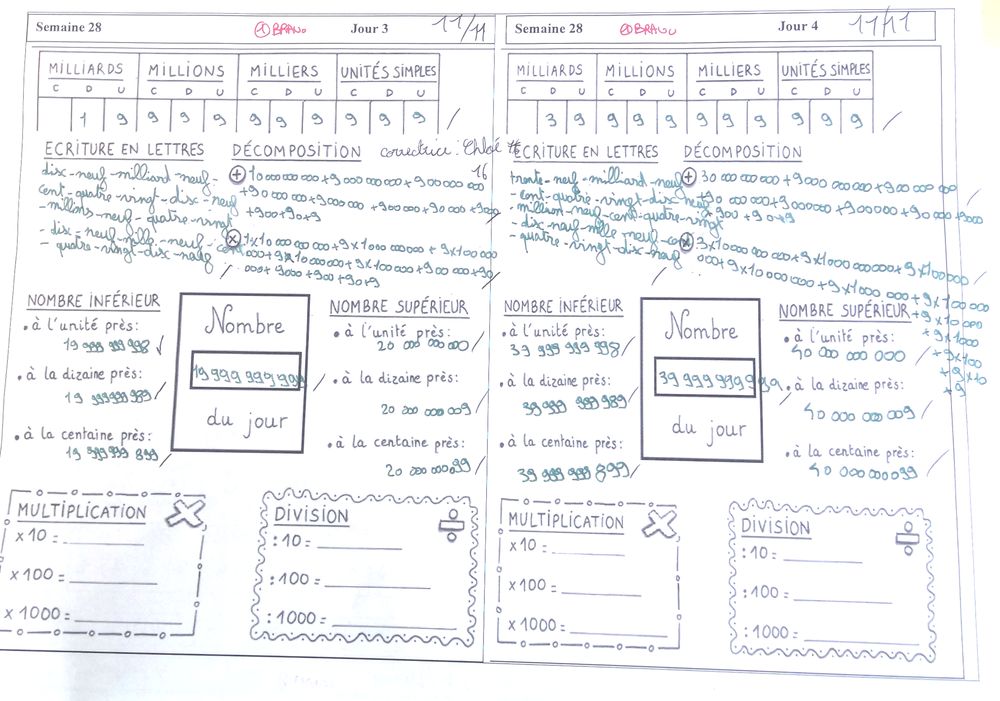 Semaine 28 ① BRAVO Jour 3 11/11
MILLIARDS MILLIONS MILLIERS UNITÉS SIMPLES
C D U C D U C D U C D U
1 9 9 9 9 9 9 9 9 9 9
ECRITURE EN LETTRES DÉCOMPOSITION correctrice : Chloé
disc-neuf-milliard-neuf-
cent-quatre-vingt-disc-neuf
-millons-neuf-quatre-vingt
-disc-neuf-mille-neuf-cent
-quatre-vingt-disc-neuf
+ 10 000 000 000 + 9 000 000 000 + 900 000 000
+ 900 + 90 + 9
NOMBRE INFÉRIEUR
• à l'unité près:
19 999 999 998
• à la dizaine près:
19 999 999 989
• à la centaine près:
19 999 999 899
Nombre
19 999 999 999
du jour
NOMBRE SUPÉRIEUR
• à l'unité près:
20 000 000 000
• à la dizaine près:
20 000 000 009
• à la centaine près:
20 000 000 099
MULTIPLICATION
x 10 =
x 100 =
x 1000 =
DIVISION
: 10 =
: 100 =
: 1000 =
Semaine 28 ② BRAVO Jour 4 11/11
MILLIARDS MILLIONS MILLIERS UNITÉS SIMPLES
C D U C D U C D U C D U
3 9 9 9 9 9 9 9 9 9 9
ECRITURE EN LETTRES DÉCOMPOSITION
trente-neuf-milliard-neuf
-cent-quatre-vingt-disc neuf
-million-neuf-cent-quatre-vingt
-disc-neuf-mille-neuf-cent
-quatre-vingt-disc-neuf
+ 30 000 000 000 + 9 000 000 000 + 900 000 000
+ 900 + 90 + 9
+ 9 x 10 000
+ 9 x 1000
+ 9 x 100
+ 9 x 10
+ 9
NOMBRE INFÉRIEUR
• à l'unité près:
39 999 999 998
• à la dizaine près:
39 999 999 989
• à la centaine près:
39 999 999 899
Nombre
39 999 999 999
du jour
NOMBRE SUPÉRIEUR
• à l'unité près:
40 000 000 000
• à la dizaine près:
40 000 000 009
• à la centaine près:
40 000 000 099
MULTIPLICATION
x 10 =
x 100 =
x 1000 =
DIVISION
: 10 =
: 100 =
: 1000 =